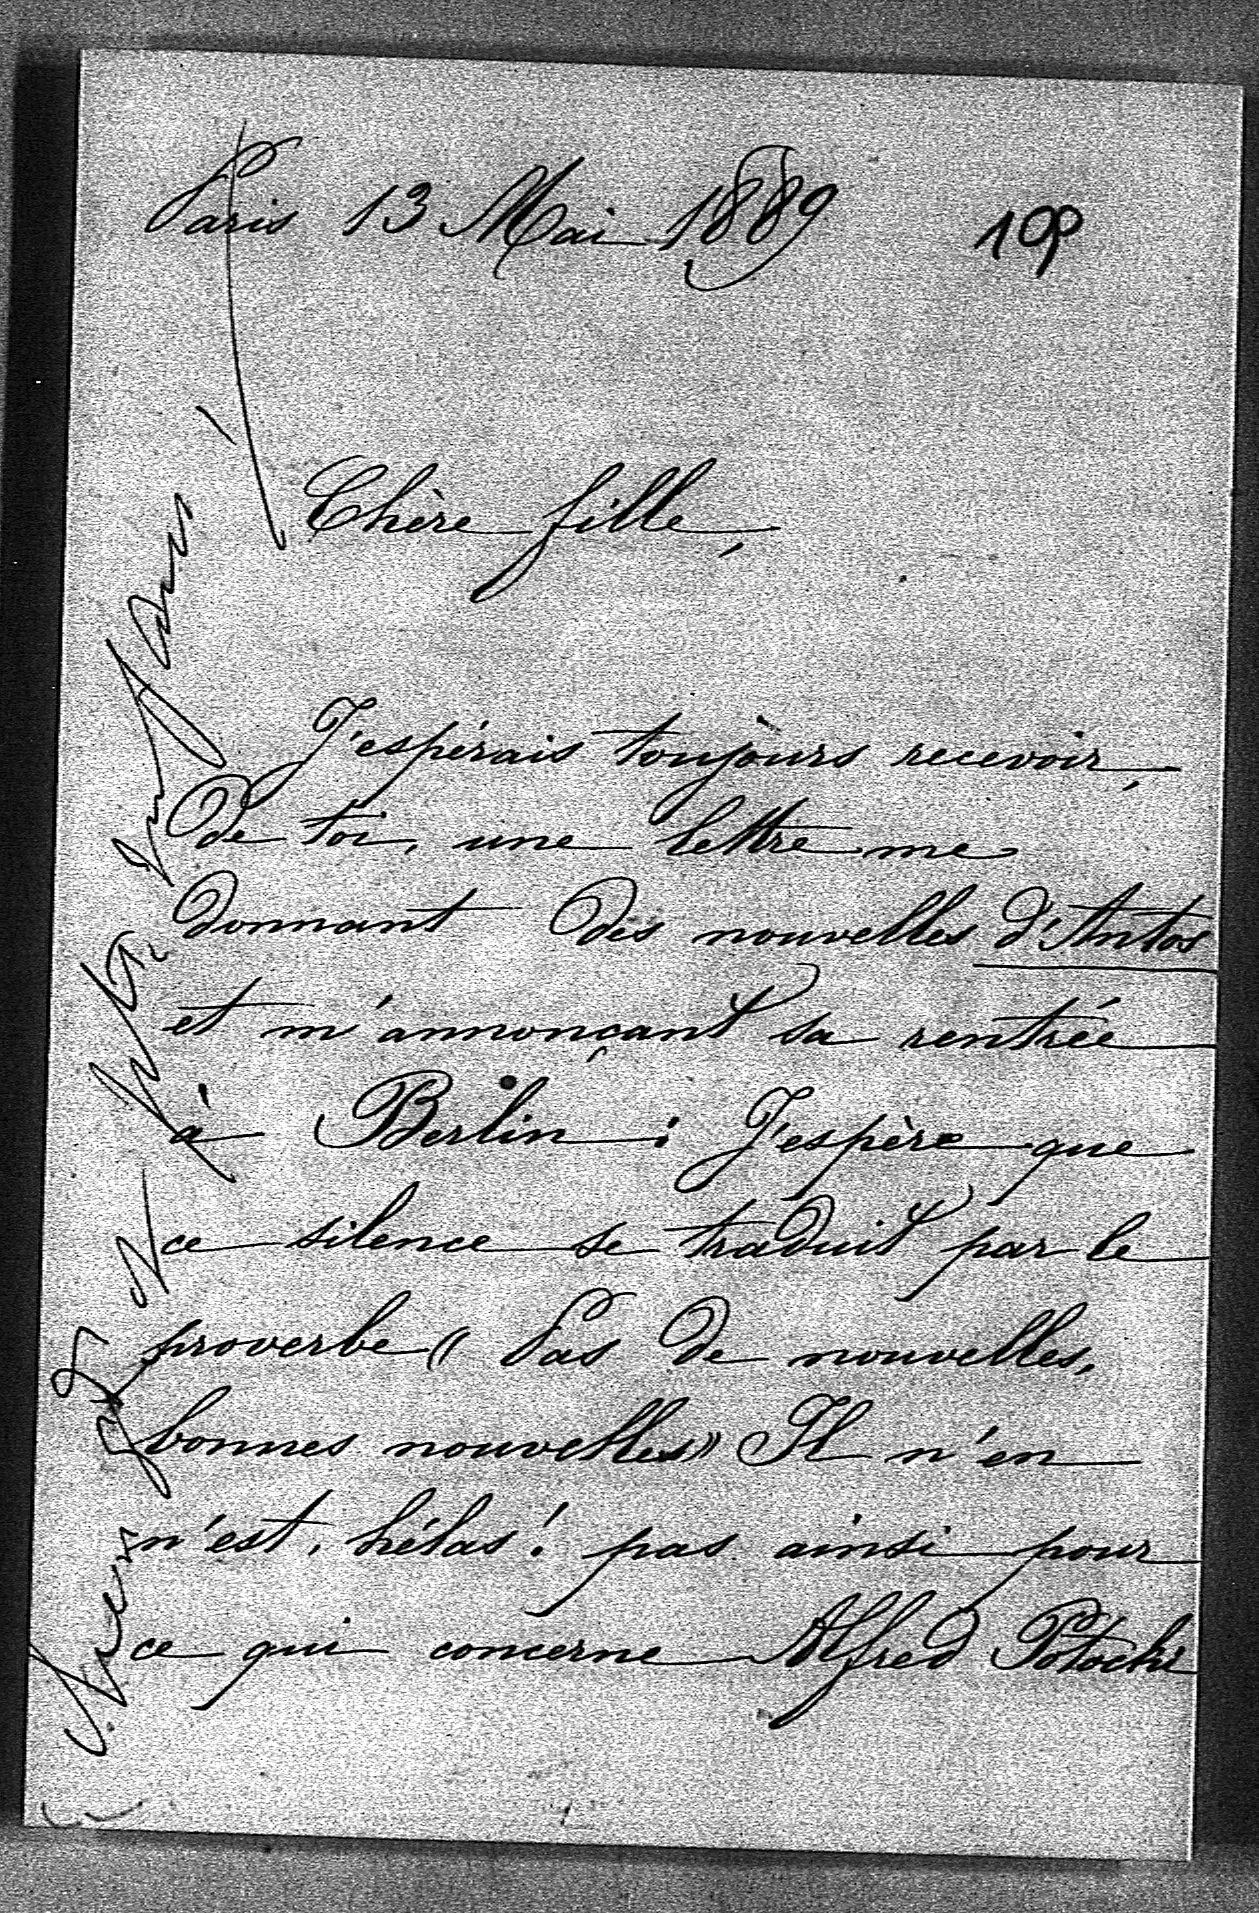 Paris 13 Mai 1889
109
Chère fille,
J'espérais toujours recevoir,
de toi, une lettre me
donnant des nouvelles d'Antos
et m'annonçant sa rentrée
à Berlin : J'espère que
ce silence se traduit par le
proverbe « Pas de nouvelles,
bonnes nouvelles » Il n'en
n'est, hélas ! pas ainsi pour
ce qui concerne Alfred Potocki